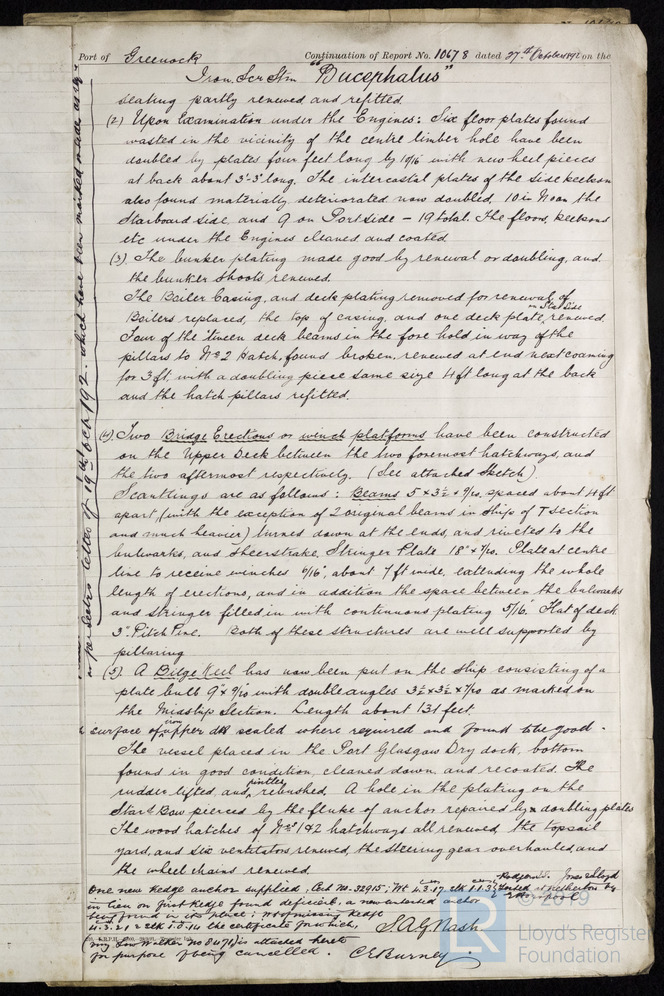 Port of Greenock Continuation of Report No. 10678 dated 27th October 192 on the
Iron Scr Stm "Bucephalus"
seating partly renewed and refitted.
(2) Upon Examination under the Engines: Six floor plates found
wasted in the vicinity of the centre limber hole have been
doubled by plates four feet long by 10/16 with new heel pieces
at back about 3'-3" long. The intercostal plates of the side keelson
also found materially deteriorated now doubled, 10 in No on the
Starboard side, and 9 on Port side – 19 total. The floors, keelsons
etc under the Engines cleaned and coated.
(3) The bunker plating made good by renewal or doubling, and
the bunker shoots renewed.
The Boiler Casing, and deck plating removed for renewal of
Boilers replaced, the top of casing, and one deck plate, on Star Side renewed.
Four of the 'tween deck beams in the fore hold in way of the
pillars to No 2 Hatch, found broken, renewed at end next coaming
for 3 ft. with a doubling piece same size 4 ft long at the back
and the hatch pillars refitted.
(4) Two Bridge Erections or winch platforms have been constructed
on the Upper Deck between the two foremost hatchways, and
the two aftermost respectively. (See attached Sketch).
Scantlings are as follows: Beams 5 x 3½ x 9/20, spaced about 4 ft
apart, (with the exception of 2 original beams in ship of T section
and much heavier) turned down at the ends, and riveted to the
bulwarks, and Sheerstrake, Stringer Plate 18" x 7/20. Plate at centre
line to receive winches 6/16", about 7 ft wide, extending the whole
length of erections, and in addition the space between the bulwarks
and stringer filled in with continuous plating 5/16. Flat of deck
3" Pitch Pine. Both of these structures are well supported by
pillaring
(5). A Bilge Keel has now been put on the ship consisting of a
plate bulb 9" x 9/20 with double angles 3½ x 3½ x 7/20 as marked on
the Midship Section. Length about 131 feet.
surface of iron upper dk scaled where required and found to be good.
The vessel placed in the Port Glasgow Dry dock, bottom
found in good condition, cleaned down, and recoated. The
rudder lifted, and pintles rebushed. A hole in the plating on the
Star'd Bow pierced by the fluke of anchor repaired by doubling plates
The wood hatches of Nos 1 & 2 hatchways all renewed, the topsail
yard, and six ventilators renewed, the steering gear overhauled, and
the wheel chains renewed.
One new Kedge anchor supplied, Cert No. 32915; Wt 4.3.17 stk 1.1.3 tested at Netherton by
in lieu on first Kedge found deficient, a new
being found in its place; missing Kedge
4.3.21 2 stk 1.0.14 the certificate for which,
S.A.G. Nash
No 8471) is attached hereto
for purpose of being cancelled. C.E. Burney.
as per Sectrs letter of 19th Oct 192. which have been marked
© 2019
LR
Lloyd's Register
Foundation